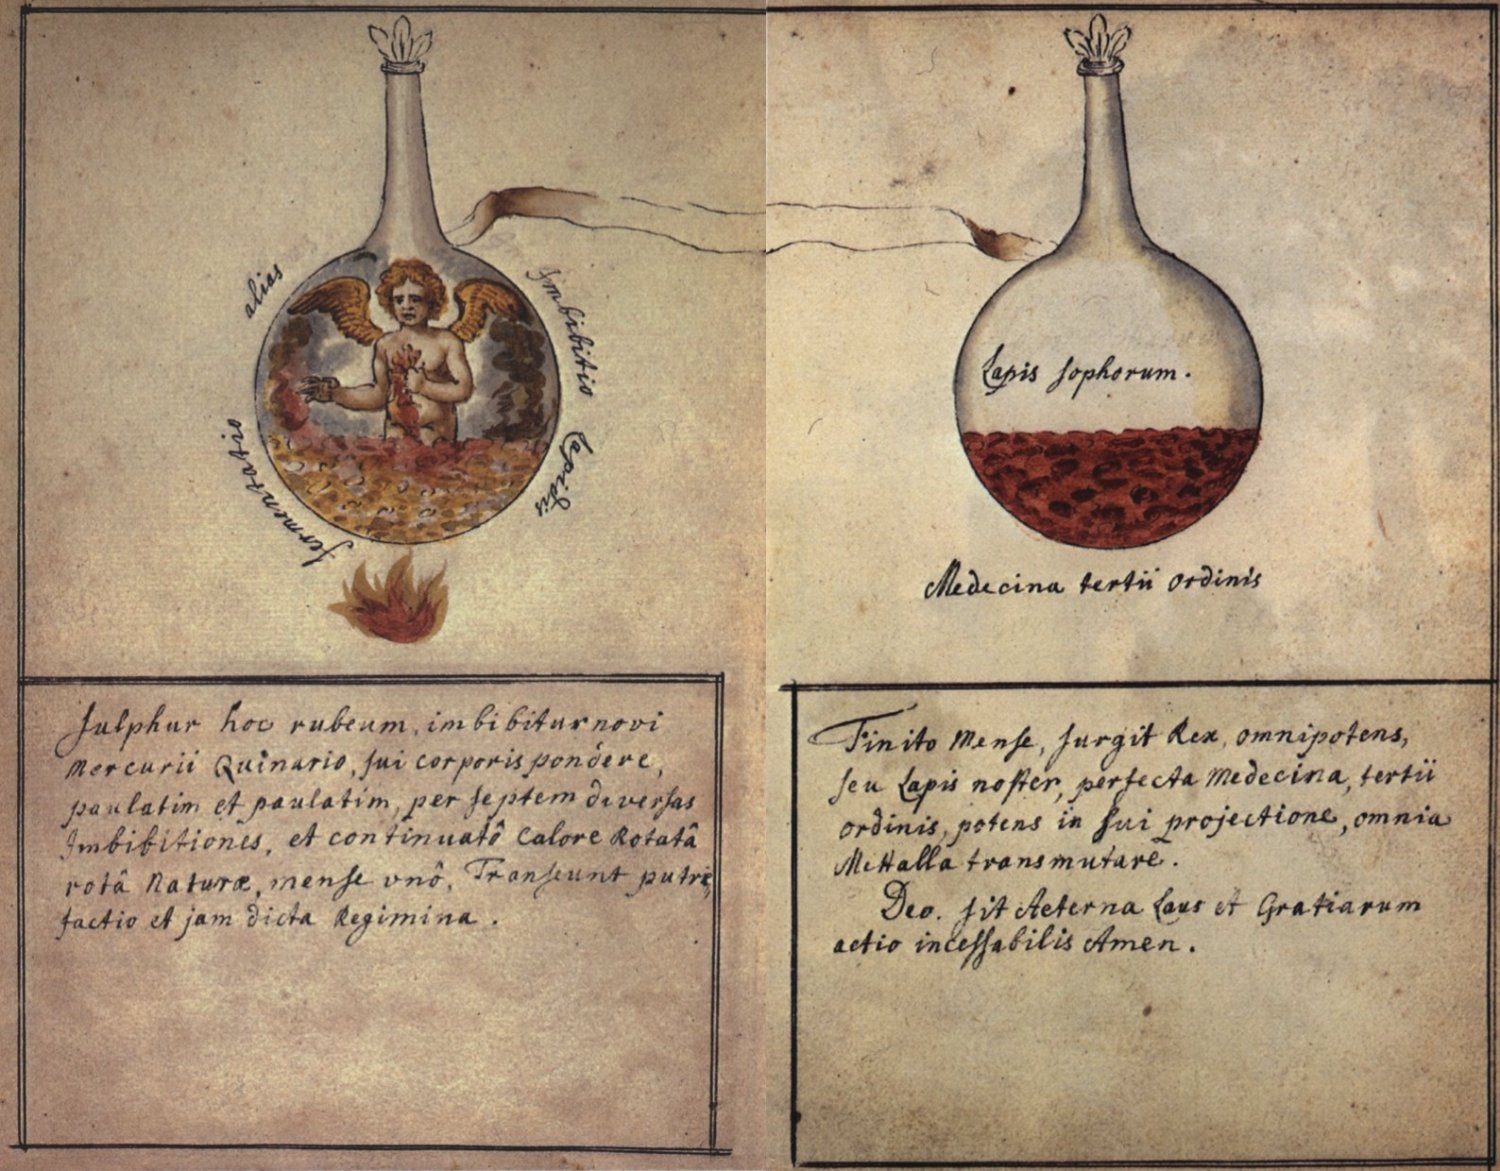 alias
fermentatio
Imbibitio
Lapidis
Sulphur hoc rubeum, imbibitur novi
Mercurii Quinario, sui corporis pondere,
paulatim et paulatim, per septem diversas
Imbibitiones, et continuatô Calore Rotatâ
rotâ Naturæ, mense vnô, Transeunt putre,
factio et jam dicta Regimina.
Lapis sophorum.
Medecina tertii ordinis
Finito Mense, surgit Rex, omnipotens,
seu Lapis noster, perfecta Medecina, tertii
ordinis, potens in sui projectione, omnia
Metalla transmutare.
Deo. sit Aeterna Laus et Gratiarum
actio incessabilis Amen.